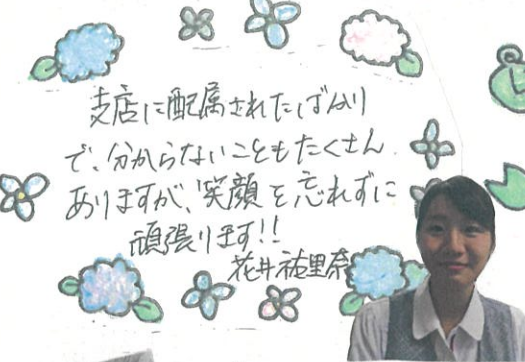 支店に配属されたばかり
で、分からないこともたくさん
ありますが、笑顔を忘れずに
頑張ります!!
花井祐里奈